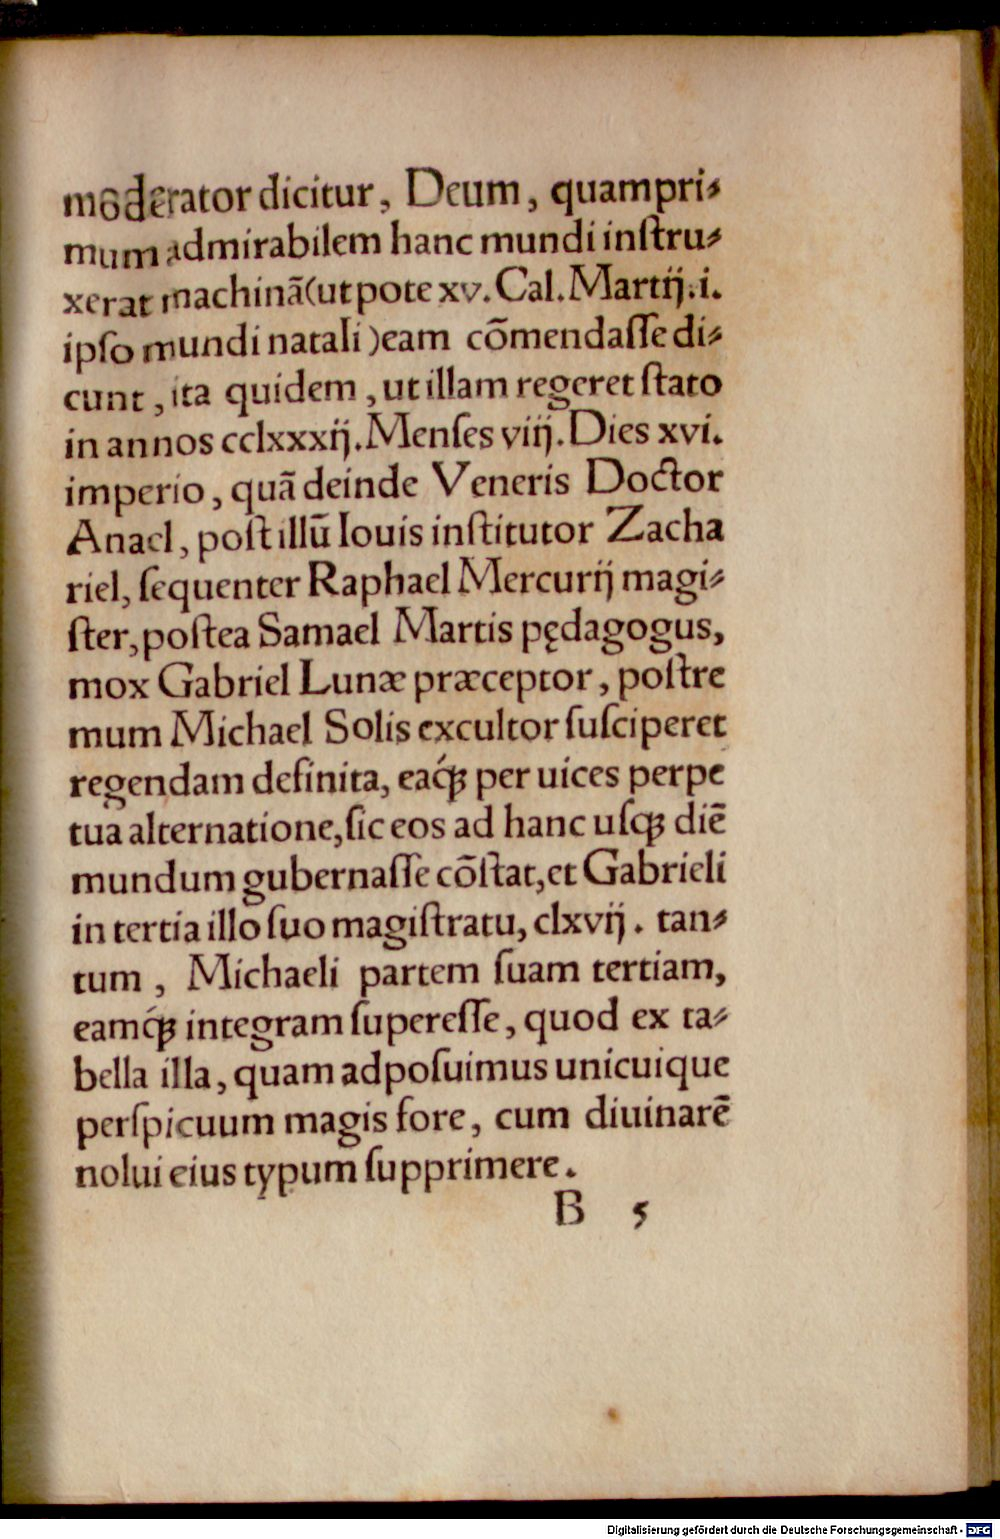 moderator dicitur, Deum, quampri⸗
mum admirabilem hanc mundi inſtru⸗
xerat machinã(utpote xv. Cal. Martij.i.
ipſo mundi natali )eam cõmendaſſe di⸗
cunt, ita quidem, ut illam regeret ſtato
in annos cclxxxij. Menſes viij. Dies xvi.
imperio, quã deinde Veneris Doctor
Anael, poſt illũ Iouis inſtitutor Zacha
riel, ſequenter Raphael Mercurij magi⸗
ſter, poſtea Samael Martis pędagogus,
mox Gabriel Lunæ præceptor, poſtre
mum Michael Solis excultor ſuſciperet
regendam definita, eaq́ꝫ per uices perpe
tua alternatione, ſic eos ad hanc uſqꝫ diẽ
mundum gubernaſſe cõſtat, et Gabrieli
in tertia illo ſuo magiſtratu, clxvij. tan⸗
tum, Michaeli partem ſuam tertiam,
eamq́ꝫ integram ſupereſſe, quod ex ta⸗
bella illa, quam adpoſuimus unicuique
perſpicuum magis fore, cum diuinarẽ
nolui eius typum ſupprimere.
B 5
Digitalisierung gefördert durch die Deutsche Forschungsgemeinschaft - DFG